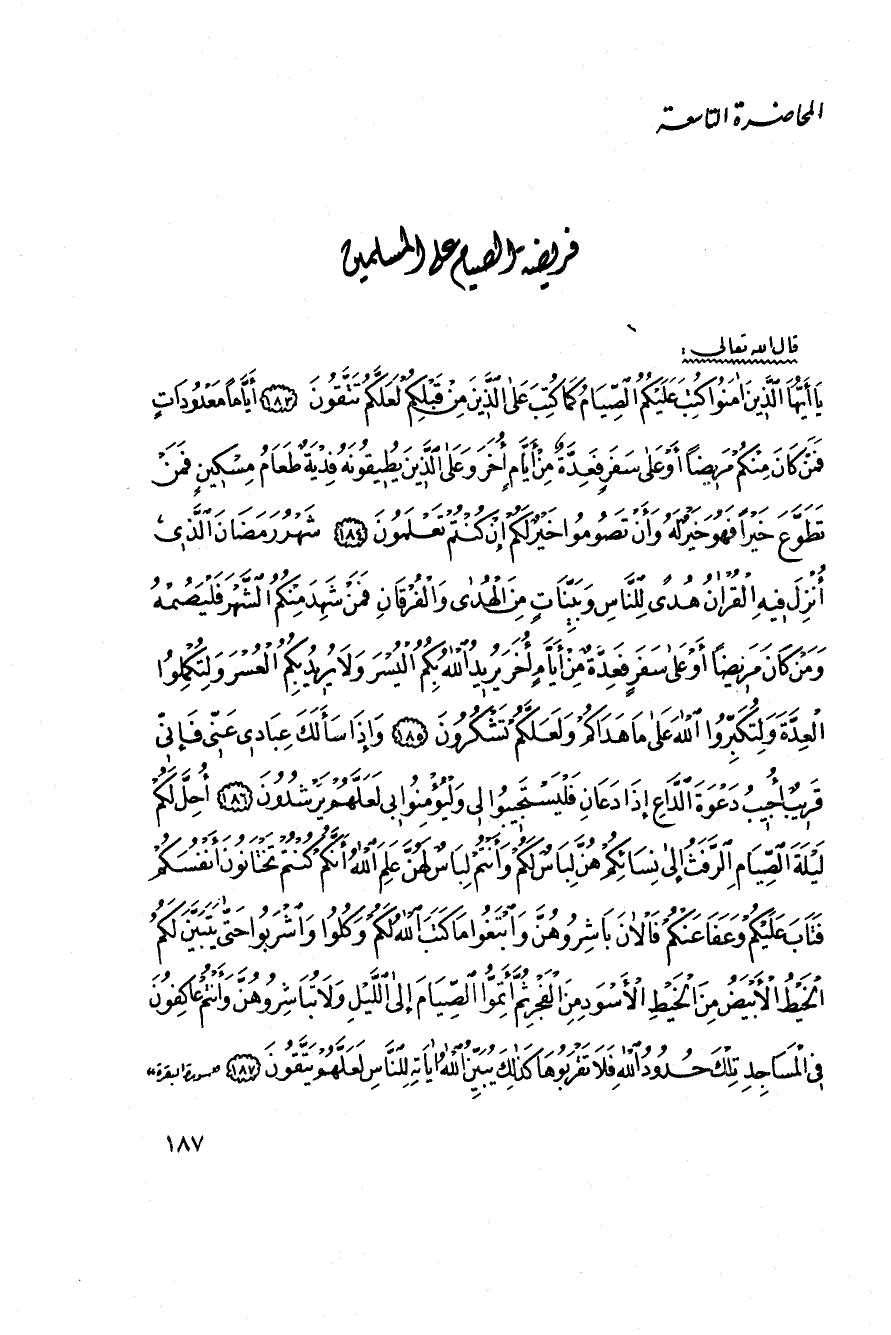 المحاضرة التاسعة
فريضة الصيام على المسلمين
قال الله تعالى :
يَا أَيُّهَا الَّذِينَ اٰمَنُوا كُتِبَ عَلَيْكُمُ الصِّيَامُ كَمَا كُتِبَ عَلَى الَّذِينَ مِنْ قَبْلِكُمْ لَعَلَّكُمْ تَتَّقُونَ ﴿١٨٣﴾ أَيَّاماً مَعْدُودَاتٍ
فَمَنْ كَانَ مِنْكُمْ مَرِيضاً أَوْ عَلَى سَفَرٍ فَعِدَّةٌ مِنْ أَيَّامٍ أُخَرَ وَعَلَى الَّذِينَ يُطِيقُونَهُ فِدْيَةٌ طَعَامُ مِسْكِينٍ فَمَنْ
تَطَوَّعَ خَيْراً فَهُوَ خَيْرٌ لَهُ وَأَنْ تَصُومُوا خَيْرٌ لَكُمْ إِنْ كُنْتُمْ تَعْلَمُونَ ﴿١٨٤﴾ شَهْرُ رَمَضَانَ الَّذِي
أُنْزِلَ فِيهِ الْقُرْاٰنُ هُدًى لِلنَّاسِ وَبَيِّنَاتٍ مِنَ الْهُدٰى وَالْفُرْقَانِ فَمَنْ شَهِدَ مِنْكُمُ الشَّهْرَ فَلْيَصُمْهُ
وَمَنْ كَانَ مَرِيضاً أَوْ عَلَى سَفَرٍ فَعِدَّةٌ مِنْ أَيَّامٍ أُخَرَ يُرِيدُ اللهُ بِكُمُ الْيُسْرَ وَلَا يُرِيدُ بِكُمُ الْعُسْرَ وَلِتُكْمِلُوا
الْعِدَّةَ وَلِتُكَبِّرُوا اللهَ عَلَى مَا هَدَاكُمْ وَلَعَلَّكُمْ تَشْكُرُونَ ﴿١٨٥﴾ وَإِذَا سَأَلَكَ عِبَادِي عَنِّي فَإِنِّي
قَرِيبٌ أُجِيبُ دَعْوَةَ الدَّاعِ إِذَا دَعَانِ فَلْيَسْتَجِيبُوا لِي وَلْيُؤْمِنُوا بِي لَعَلَّهُمْ يَرْشُدُونَ ﴿١٨٦﴾ أُحِلَّ لَكُمْ
لَيْلَةَ الصِّيَامِ الرَّفَثُ إِلَى نِسَائِكُمْ هُنَّ لِبَاسٌ لَكُمْ وَأَنْتُمْ لِبَاسٌ لَهُنَّ عَلِمَ اللهُ أَنَّكُمْ كُنْتُمْ تَخْتَانُونَ أَنْفُسَكُمْ
فَتَابَ عَلَيْكُمْ وَعَفَا عَنْكُمْ فَالْاٰنَ بَاشِرُوهُنَّ وَابْتَغُوا مَا كَتَبَ اللهُ لَكُمْ وَكُلُوا وَاشْرَبُوا حَتَّى يَتَبَيَّنَ لَكُمُ
الْخَيْطُ الْأَبْيَضُ مِنَ الْخَيْطِ الْأَسْوَدِ مِنَ الْفَجْرِ ثُمَّ أَتِمُّوا الصِّيَامَ إِلَى اللَّيْلِ وَلَا تُبَاشِرُوهُنَّ وَأَنْتُمْ عَاكِفُونَ
فِي الْمَسَاجِدِ تِلْكَ حُدُودُ اللهِ فَلَا تَقْرَبُوهَا كَذٰلِكَ يُبَيِّنُ اللهُ اٰيَاتِهِ لِلنَّاسِ لَعَلَّهُمْ يَتَّقُونَ ﴿١٨٧﴾ "سورة البقرة"
١٨٧